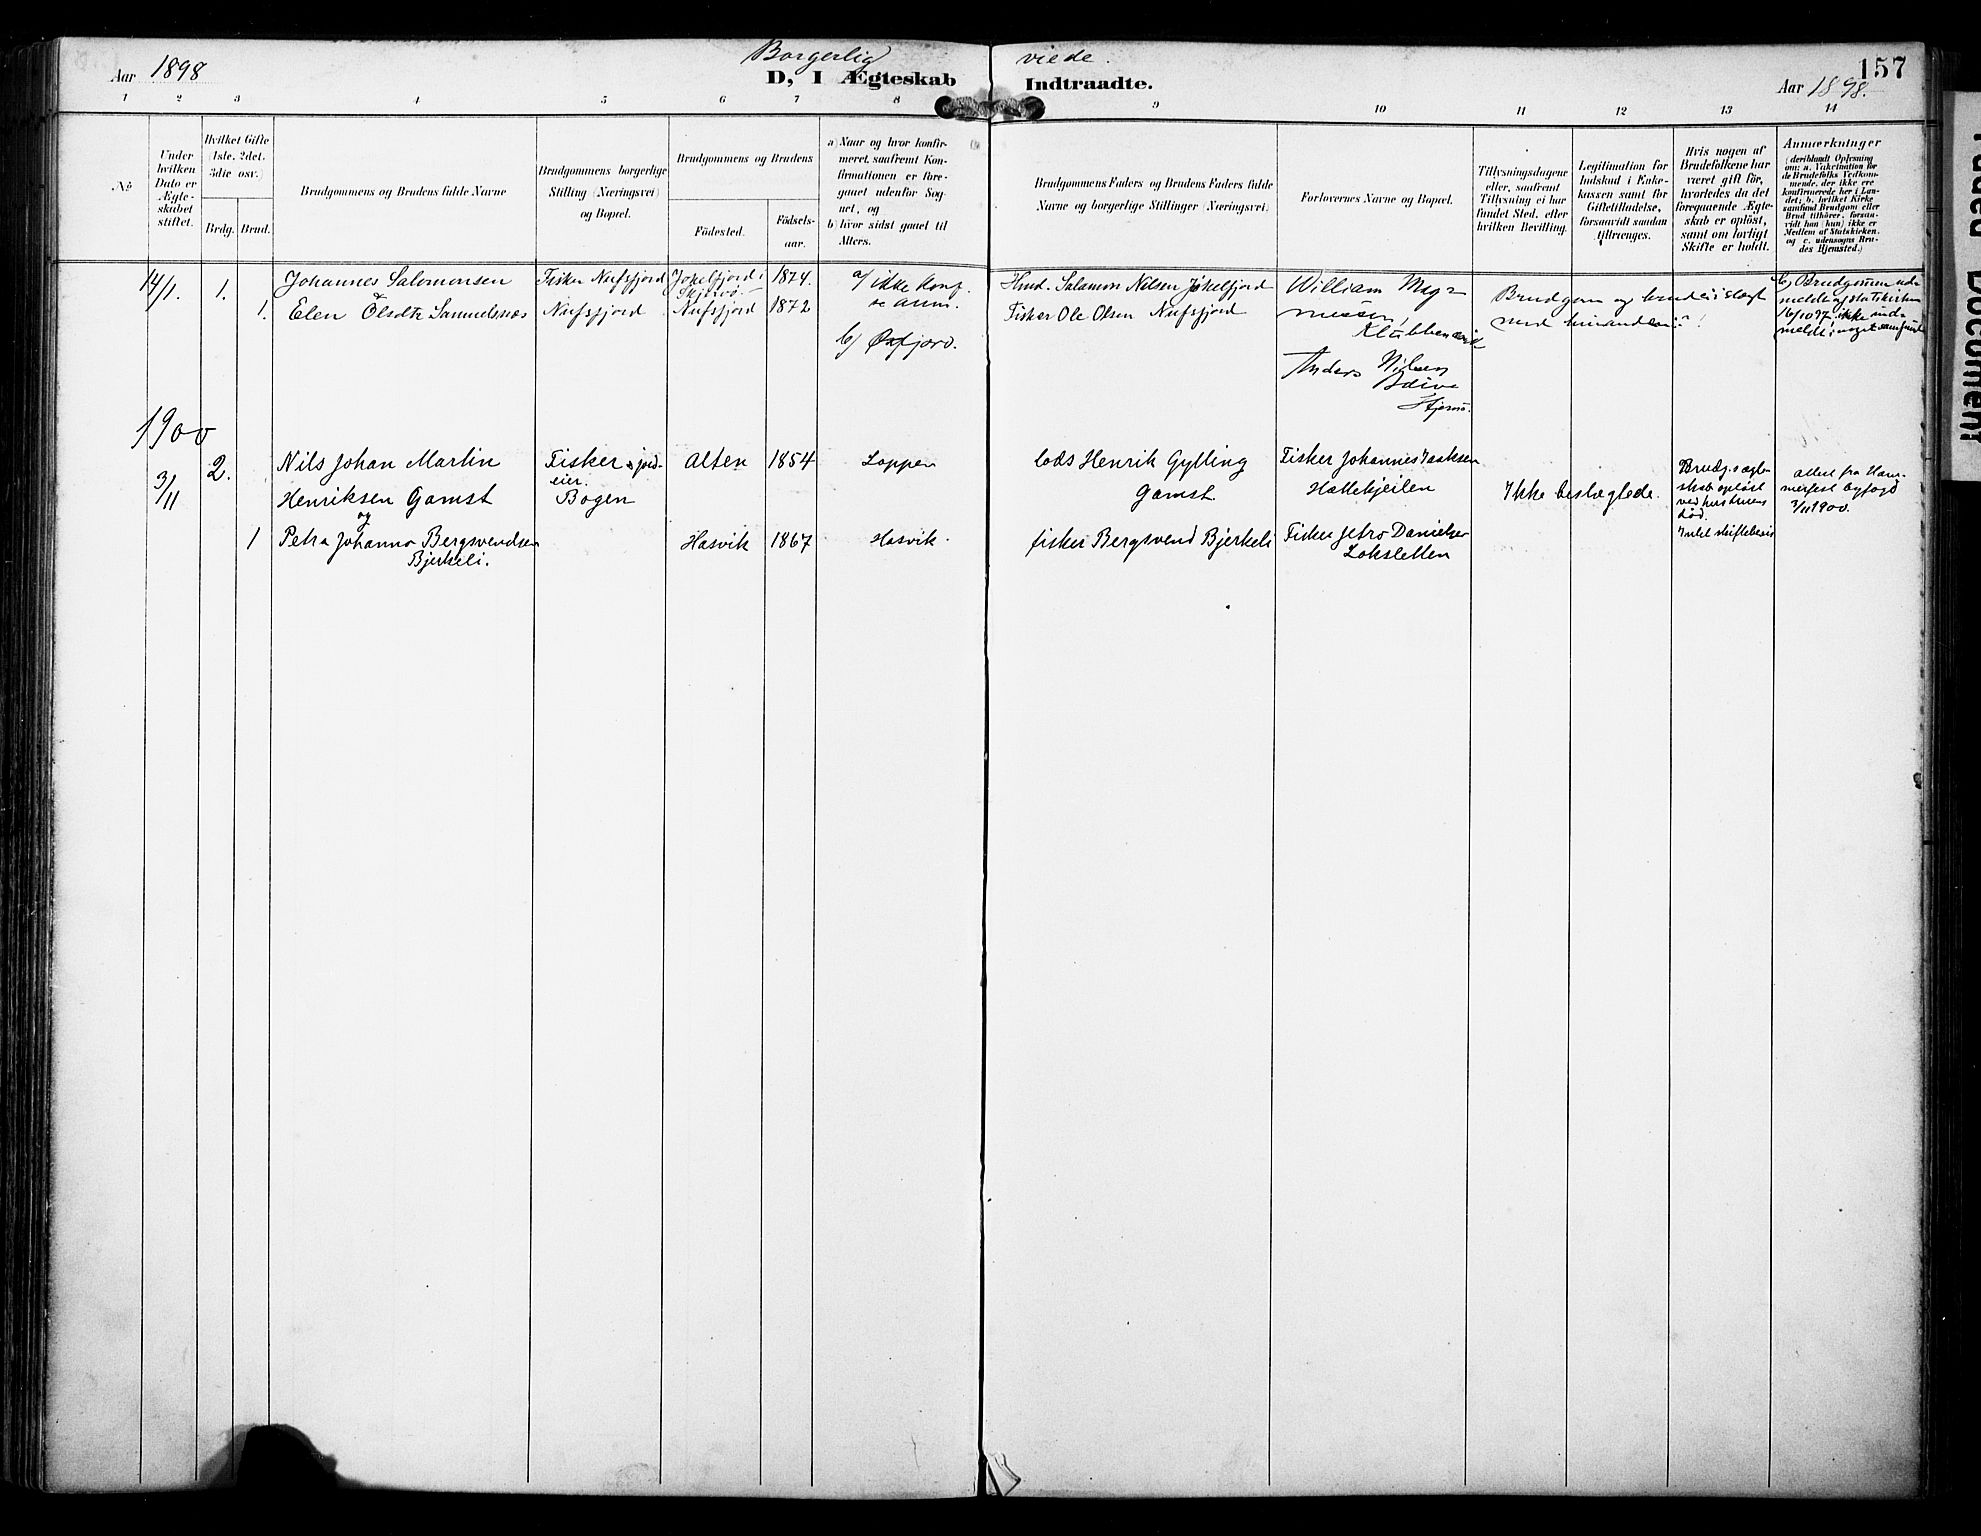 Aar 1898
Borgerlig viede.
D, I Ægteskab Indtraadte.
157
Aar 1898.
1 2 3 4 5 6 7 8 9 10 11 12 13 14
No
Under hvilken Dato er Ægteskabet stiftet.
Hvilket Gifte (1ste, 2det, 3die osv.)
Brdg. Brud.
Brudgommens og Brudens fulde Navne
Brudgommens borgerlige Stilling (Næringsvei) og Bopæl.
Brudgommens og Brudens
Födested.
Födselsaar.
a) Naar og hvor konfirmeret, saafremt Konfirmationen er foregaaet udenfor Sognet, og
b) hvor sidst gaaet til Alters.
Brudgommens Faders og Brudens Faders fulde Navne og borgerlige Stillinger (Næringsvei)
Forlovernes Navne og Bopæl.
Tillysningsdagene eller, saafremt Tillysning ei har fundet Sted, efter hvilken Bevilling.
Legitimation for Indskud i Enkekassen samt for Giftetilladelse, forsaavidt saadan tiltrænges.
Hvis nogen af Brudefolkene har været gift för, hvorledes da det foregaaende Ægteskab er oplöst, samt om lovligt Skifte er holdt.
Anmærkninger
(deriblandt Oplysning om: a. Vakcination for de Brudefolks Vedkommende, der ikke ere konfirmerede her i Landet; b. hvilket Kirkesamfund Brudgom eller Brud tilhörer, forsaavidt han (hun) ikke er Medlem af Statskirken, og c. udensogns Brudes Hjemsted.)
14/1. 1. Johannes Salomonsen Fisker Nufsfjord Jokelfjord i Skjervö 1874. a/ ikke konf. se anm.
1. Elen Olsdtr Samuelsnæs Nufsfjord Nufsfjord 1872
b/ Øxfjord.
Salamon Nilsen Jökelfjord
Fisker Ole Olsen Nufsfjord
William Magnussen, Klubbenæsvik
Anders Nilsen
Brudgom og brud i slægt med hinanden
b) Brudgommen udmeldt af statskirken 16/10 97, ikke indmeldt i noget samfund
1900
3/11 2. Nils Johan Martin Henriksen Gamst Fisker & jordeier. Bogen Alten 1854 Loppen
og
1 Petra Johanna Bergsvendsen Bjerkeli. Hasvik 1867 Hasvik.
Lods Henrik Gylling Gamst.
fisker Bergsvend Bjerkeli
Fisker Johannes Isaksen Hattekjeilen
Fisker Jetro Danielsen Loksletten
Ikke beslægtede.
Brudg.s ægteskab oplöst ved hustruens död.
Intet skiftebevis
attest fra Hammerfest byfogd 3/11 1900.